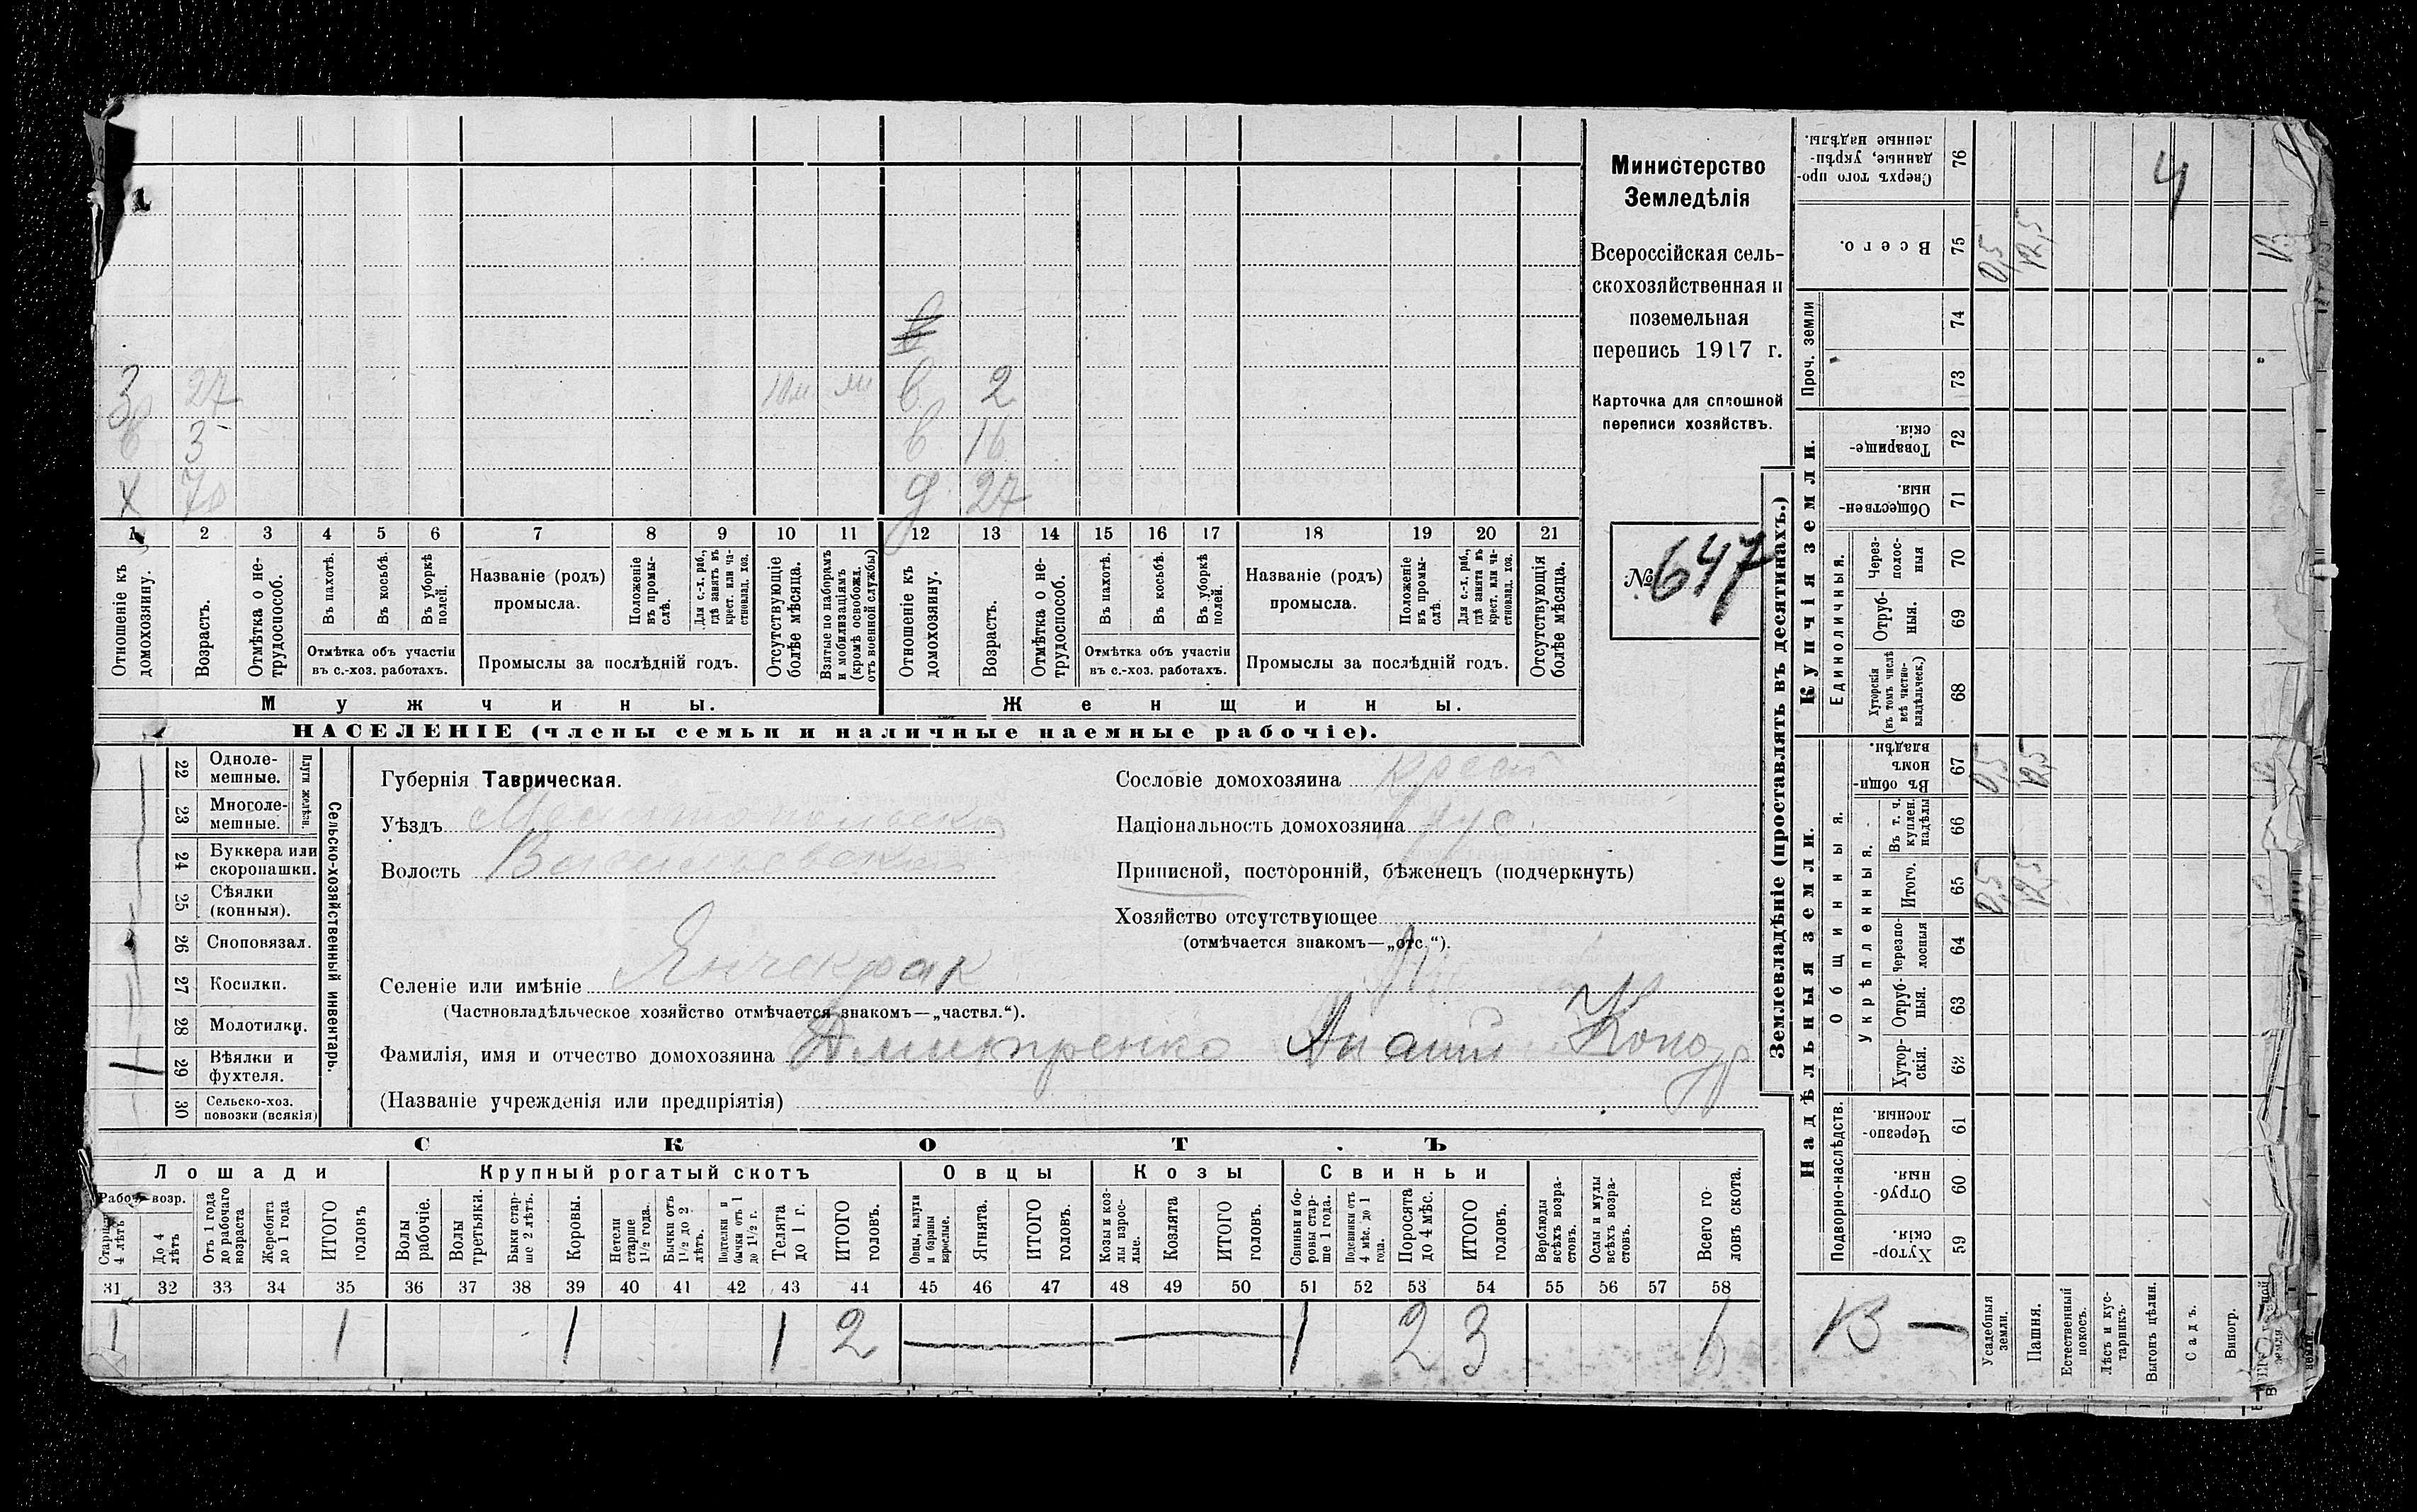 Министерство
Земледѣлія
Всероссійская сель-
скохозяйственная и
поземельная
перепись 1917 г.
Карточка для сплошной
переписи хозяйствъ.
№ 647
З 27 в 2
в 3 в 16
х 70 д 27
1 2 3 4 5 6 7 8 9 10 11 12 13 14 15 16 17 18 19 20 21
Отношеніе къ домохозяину.
Возрастъ.
Отмѣтка о не-трудоспособ.
Въ пахотѣ.
Въ косьбѣ.
Въ уборкѣ полей.
Отмѣтка объ участіи
въ с.-хоз. работахъ.
Названіе (родъ)
промысла.
Положеніе въ промы-слѣ.
Для с.-х. раб., гдѣ занятъ въ крест. или ча-стновлад. хоз.
Промыслы за послѣдній годъ.
Отсутствующіе болѣе мѣсяца.
Взятые по наборамъ и мобилизаціямъ (кромѣ освобожд. отъ военной службы)
Отношеніе къ домохозяину.
Возрастъ.
Отмѣтка о не-трудоспособ.
Въ пахотѣ.
Въ косьбѣ.
Въ уборкѣ полей.
Отмѣтка объ участіи
въ с.-хоз. работахъ.
Названіе (родъ)
промысла.
Положеніе въ промы-слѣ.
Для с.-х. раб., гдѣ заняты въ крест. или ча-стновлад. хоз.
Промыслы за послѣдній годъ.
Отсутствующія болѣе мѣсяца.
Мужчины.
Женщины.
НАСЕЛЕНІЕ (члены семьи и наличные наемные рабочіе).
Сельско-хозяйственный инвентарь.
Плуги желѣзн.
22 Одноле-мешные.
23 Многоле-мешные.
24 Буккера или скоропашки.
25 Сѣялки (конныя).
26 Сноповязал.
27 Косилки.
28 Молотилки.
29 Вѣялки и фухтеля. 1
30 Сельско-хоз. повозки (всякія)
Губернія Таврическая.
Уѣздъ Мелитопольскій
Волость Васильевская
Селеніе или имѣніе Янчекрак
(Частновладѣльческое хозяйство отмѣчается знакомъ—„частвл.“).
Фамилія, имя и отчество домохозяина Дмитренко
(Названіе учрежденія или предпріятія)
Сословіе домохозяина крест
Національность домохозяина рус.
Приписной, посторонній, бѣженецъ (подчеркнуть)
Хозяйство отсутствующее
(отмѣчается знакомъ—„отс.“).
СКОТЪ
Лошади Крупный рогатый скотъ Овцы Козы Свиньи
Рабоч. возр.
Старше 4 лѣтъ
До 4 лѣтъ
Отъ 1 года до рабочаго возраста
Жеребята до 1 года
ИТОГО головъ
Волы рабочіе.
Волы третьяки.
Быки стар-ше 2 лѣтъ.
Коровы.
Нетели старше 1½ года.
Бычки отъ 1½ до 2 лѣтъ.
Подтелки и бычки отъ 1 до 1½ г.
Телята до 1 г.
ИТОГО головъ.
Овцы, валухи и бараны взрослые.
Ягнята.
ИТОГО головъ.
Козы и коз-лы взрос-лые.
Козлята
ИТОГО головъ.
Свиньи и бо-ровы стар-ше 1 года.
Подсвинки отъ 4 мѣс. до 1 года.
Поросята до 4 мѣс.
ИТОГО головъ.
Верблюды всѣхъ возра-стовъ.
Ослы и мулы всѣхъ возра-стовъ.
Всего го-ловъ скота.
31 32 33 34 35 36 37 38 39 40 41 42 43 44 45 46 47 48 49 50 51 52 53 54 55 56 57 58
1 1 1 1 2 1 2 3 6
Землевладѣніе (проставлять въ десятинахъ.)
Купчія земли.
Надѣльныя земли.
Сверхъ того про-данные, укрѣп-ленные надѣлы. 76
Всего. 75 0,5 12,5
Проч. земли 74 73
Товарище-скія. 72
Обществен-ныя 71
Единоличныя.
Через-полос-ныя 70
Отруб-ныя. 69
Хуторскія (въ томъ числѣ всѣ частно-владѣльческ.) 68
Общинныя.
Въ общи-номъ владѣн. 67 0,5 12,5
Укрѣпленныя.
Въ т. ч. куплен. надѣлы 66
Итого. 65 0,5 12,5
Черезпо-лосныя 64
Отруб-ныя. 63
Хутор-скія. 62
Подворно-наслѣдств.
Черезпо-лосныя. 61
Отруб-ныя. 60
Хутор-скія. 59
13 —
Усадебныя земли.
Пашня.
Естественный покосъ.
Лѣсъ и кус-тарникъ.
Выгонъ цѣлин.
Садъ.
Виногр.